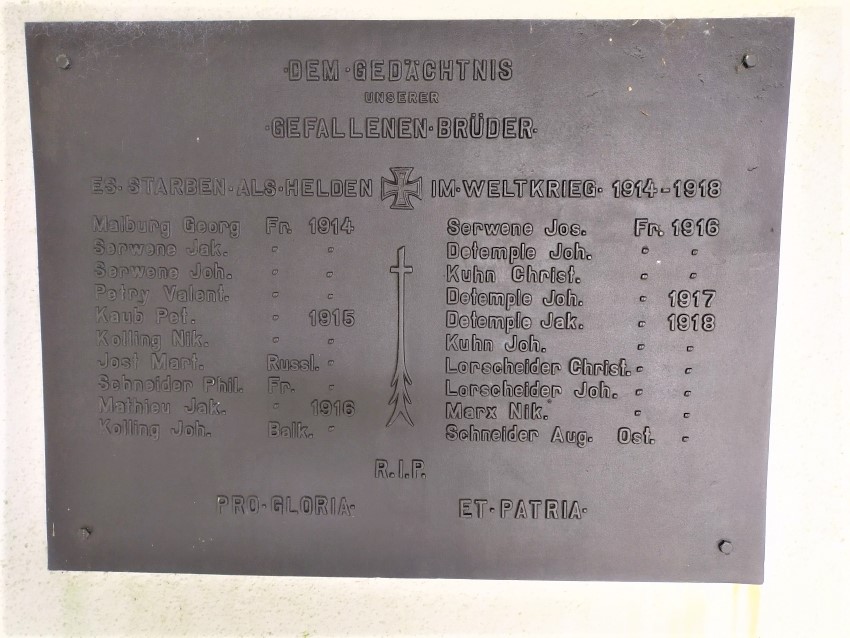 ·DEM·GEDÄCHTNIS
UNSERER
·GEFALLENEN·BRÜDER·
ES·STARBEN·ALS·HELDEN IM·WELTKRIEG·1914-1918
Maiburg Georg Fr. 1914
Serwene Jak. " "
Serwene Joh. " "
Petry Valent. " "
Kaub Pet. " 1915
Kolling Nik. " "
Jost Mart. Russl. "
Schneider Phil. Fr. "
Mathieu Jak. " 1916
Kolling Joh. Balk. "
Serwene Jos. Fr. 1916
Detemple Joh. " "
Kuhn Christ. " "
Detemple Joh. " 1917
Detemple Jak. " 1918
Kuhn Joh. " "
Lorscheider Christ. " "
Lorscheider Joh. " "
Marx Nik. " "
Schneider Aug. Ost. "
R.I.P.
PRO·GLORIA· ET·PATRIA·